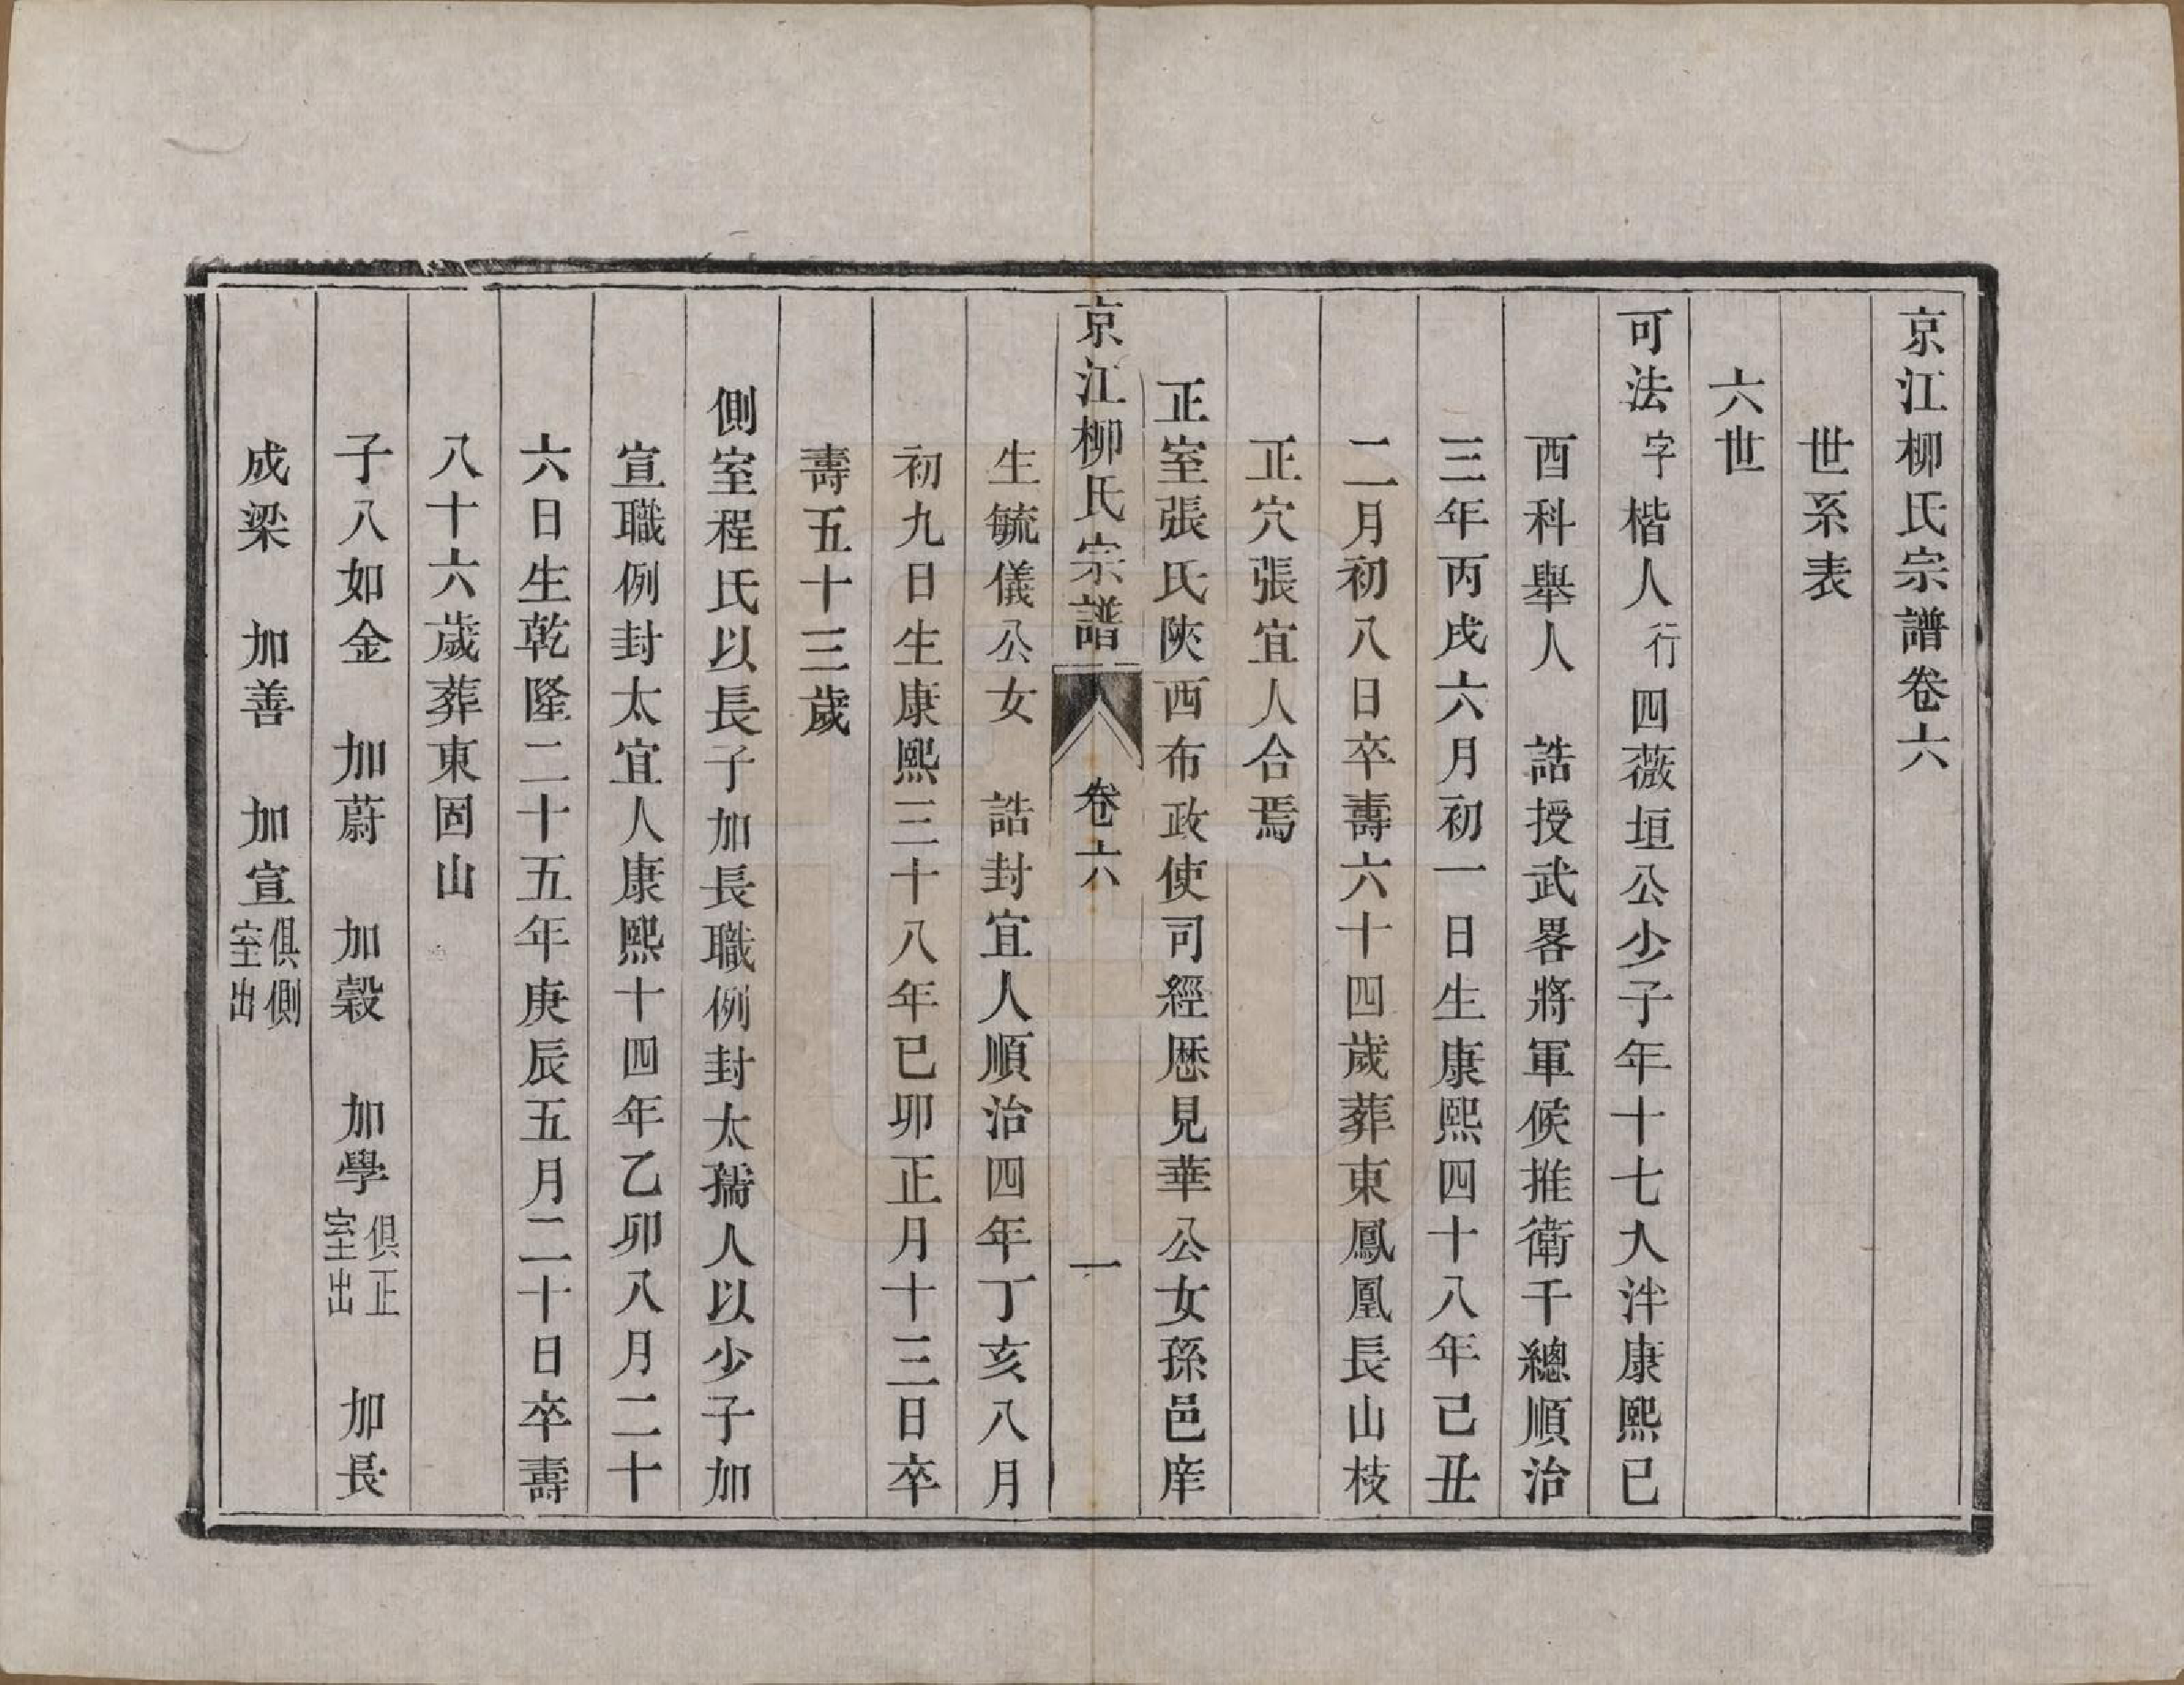 京江柳氏宗譜卷六
世系表
六世
可法字楷人行四薇垣公少子年十七入泮康熙己
酉科舉人　誥授武畧將軍候推衛千總順治
三年丙戌六月初一日生康熙四十八年己丑
二月初八日卒壽六十四歲葬東鳳凰長山枝
正穴張宜人合焉
正室張氏陝西布政使司經歷見華公女孫邑庠
京江柳氏宗譜　卷六　一
生毓儀公女　誥封宜人順治四年丁亥八月
初九日生康熙三十八年己卯正月十三日卒
壽五十三歲
側室程氏以長子加長職例封太孺人以少子加
宣職例封太宜人康熙十四年乙卯八月二十
六日生乾隆二十五年庚辰五月二十日卒壽
八十六歲葬東固山
子八如金　加蔚　加穀　加學俱正室出　加長
成梁　加善　加宣俱側室出